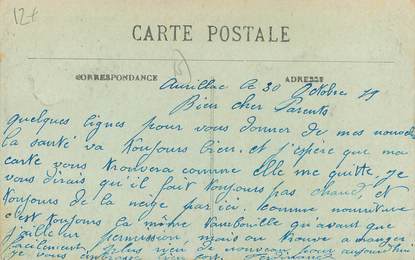 12+
CARTE POSTALE
CORRESPONDANCE
ADRESSE
Aurillac le 30 Octobre 19
Bien cher Parents
quelques lignes pour vous donner de mes nouvel
la santé va toujours bien, et j'espère que ma
carte vous trouvera comme elle me quitte, je
vous dirais qu'il fait toujours pas chaud, et
toujours de la neige par ici. Comme nourriture
c'est toujours la même tambouille qu'avant que
j'aille en permission, mais on trouve a manger
facilement, plus rien de nouveau pour aujourd'hui
je vous embrasse bien fort.